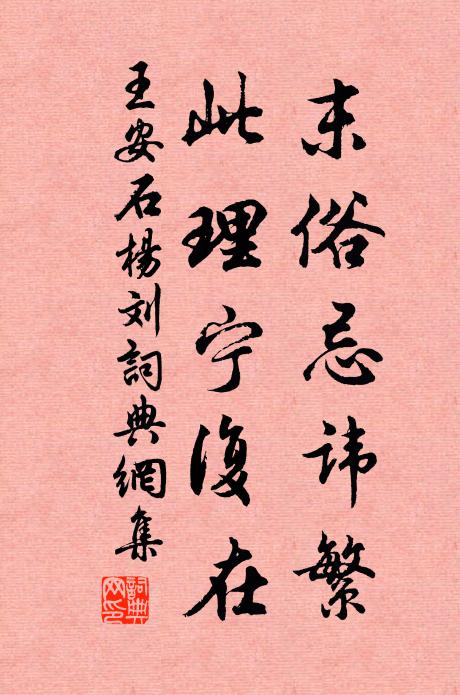 末俗忌讳繁
此理宁復在
王安石楊刘詞典網集
詞典网印